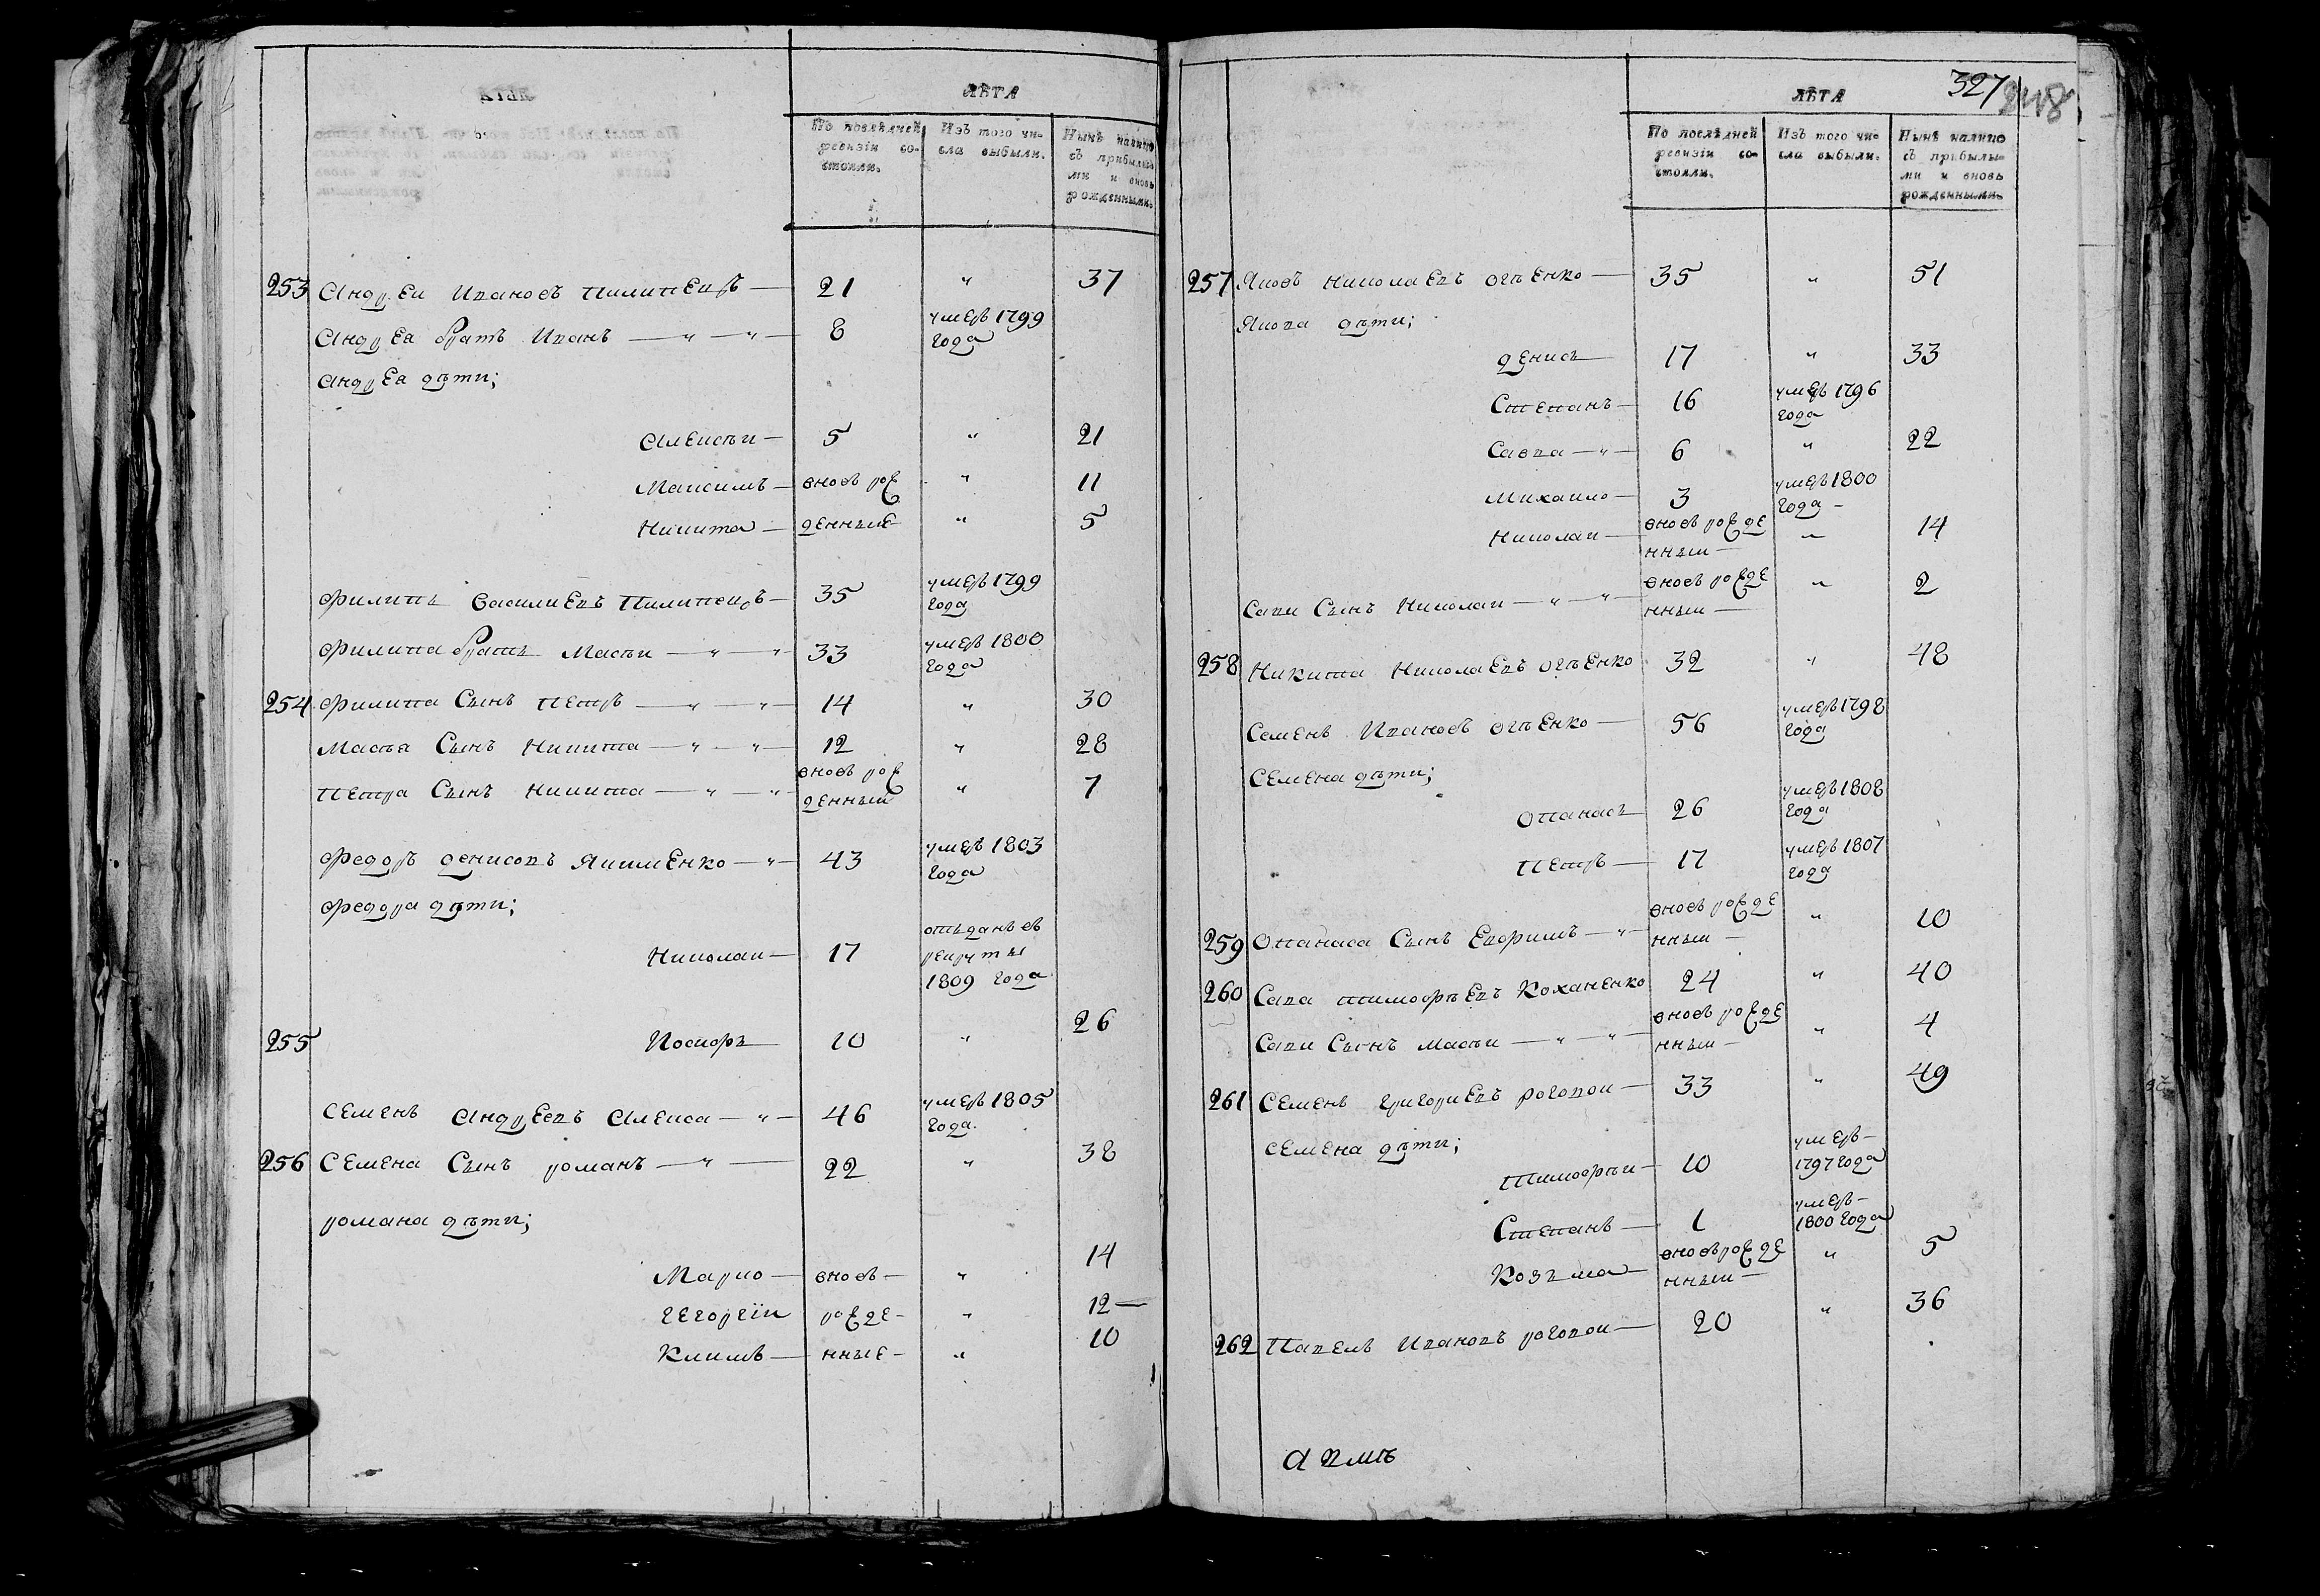 ЛѢТА
По послѣдней ревизіи состояли.
Изъ того числа выбыли.
Нынѣ налицо съ прибылыми и вновь рожденными.
253 Андрей Ивановъ Пилипецъ — 21 " 37
Андрея братъ Иванъ — " — " — 8 умеръ 1799 года
Андрея дѣти;
Алексѣй — 5 " 21
Максимъ — вновь рож " 11
Никита — денные " 5
Филипъ Василиевъ Пилипецъ — 35 умеръ 1799 года
Филипа братъ Масѣй — " — " 33 умеръ 1800 года
254 Филипа Сынъ Петръ — " — " — 14 " 30
Масѣя Сынъ Никита — " — " — 12 " 28
Петра Сынъ Никита — " — " вновь рожденный " 7
Федоръ Денисовъ Якименко — " — 43 умеръ 1803 года
Федора дѣти;
Николай — 17 отъданъ въ рекруты 1809 года
255 Иосифъ — 10 " 26
Семенъ Андреевъ Алекса — " — 46 умеръ 1805 года.
256 Семена Сынъ Романъ — " — 22 " 38
Романа дѣти;
Марко — вновь — " 14
Георгій рожде- " 12 —
Климъ — нные — " 10
327
ЛѢТА
По послѣдней ревизіи состояли.
Изъ того числа выбыли.
Нынѣ налицо съ прибылыми и вновь рожденными.
257 Яковъ Николаевъ Огѣенко — 35 " 51
Якова дѣти;
Денисъ — 17 " 33
Степанъ — 16 умеръ 1796 года
Савва — " — 6 " 22
Михайло — 3 умеръ 1800 года —
Николай — вновь рожденный — " 14
Сави Сынъ Николай — " — " — вновь рожденный — " 2
258 Никита Николаевъ Огѣенко 32 " 48
Семенъ Ивановъ Огѣенко — 56 умеръ 1798 года
Семена дѣти;
Опанасъ 26 умеръ 1808 года
Петръ — 17 умеръ 1807 года
259 Опанаса Сынъ Евфимъ — " — вновь рожденный — " 10
260 Сава Тимофѣевъ Коханенко 24 " 40
Сави Сынъ Масѣй — " — " — вновь рожденный — " 4
261 Семенъ Григориевъ Роговой — 33 " 49
Семена дѣти;
Тимофѣй — 10 умеръ — 1797 года
Степанъ — 1 умеръ — 1800 года
Козъма — вновь рожденный — " 5
262 Павелъ Ивановъ Роговой — 20 " 36